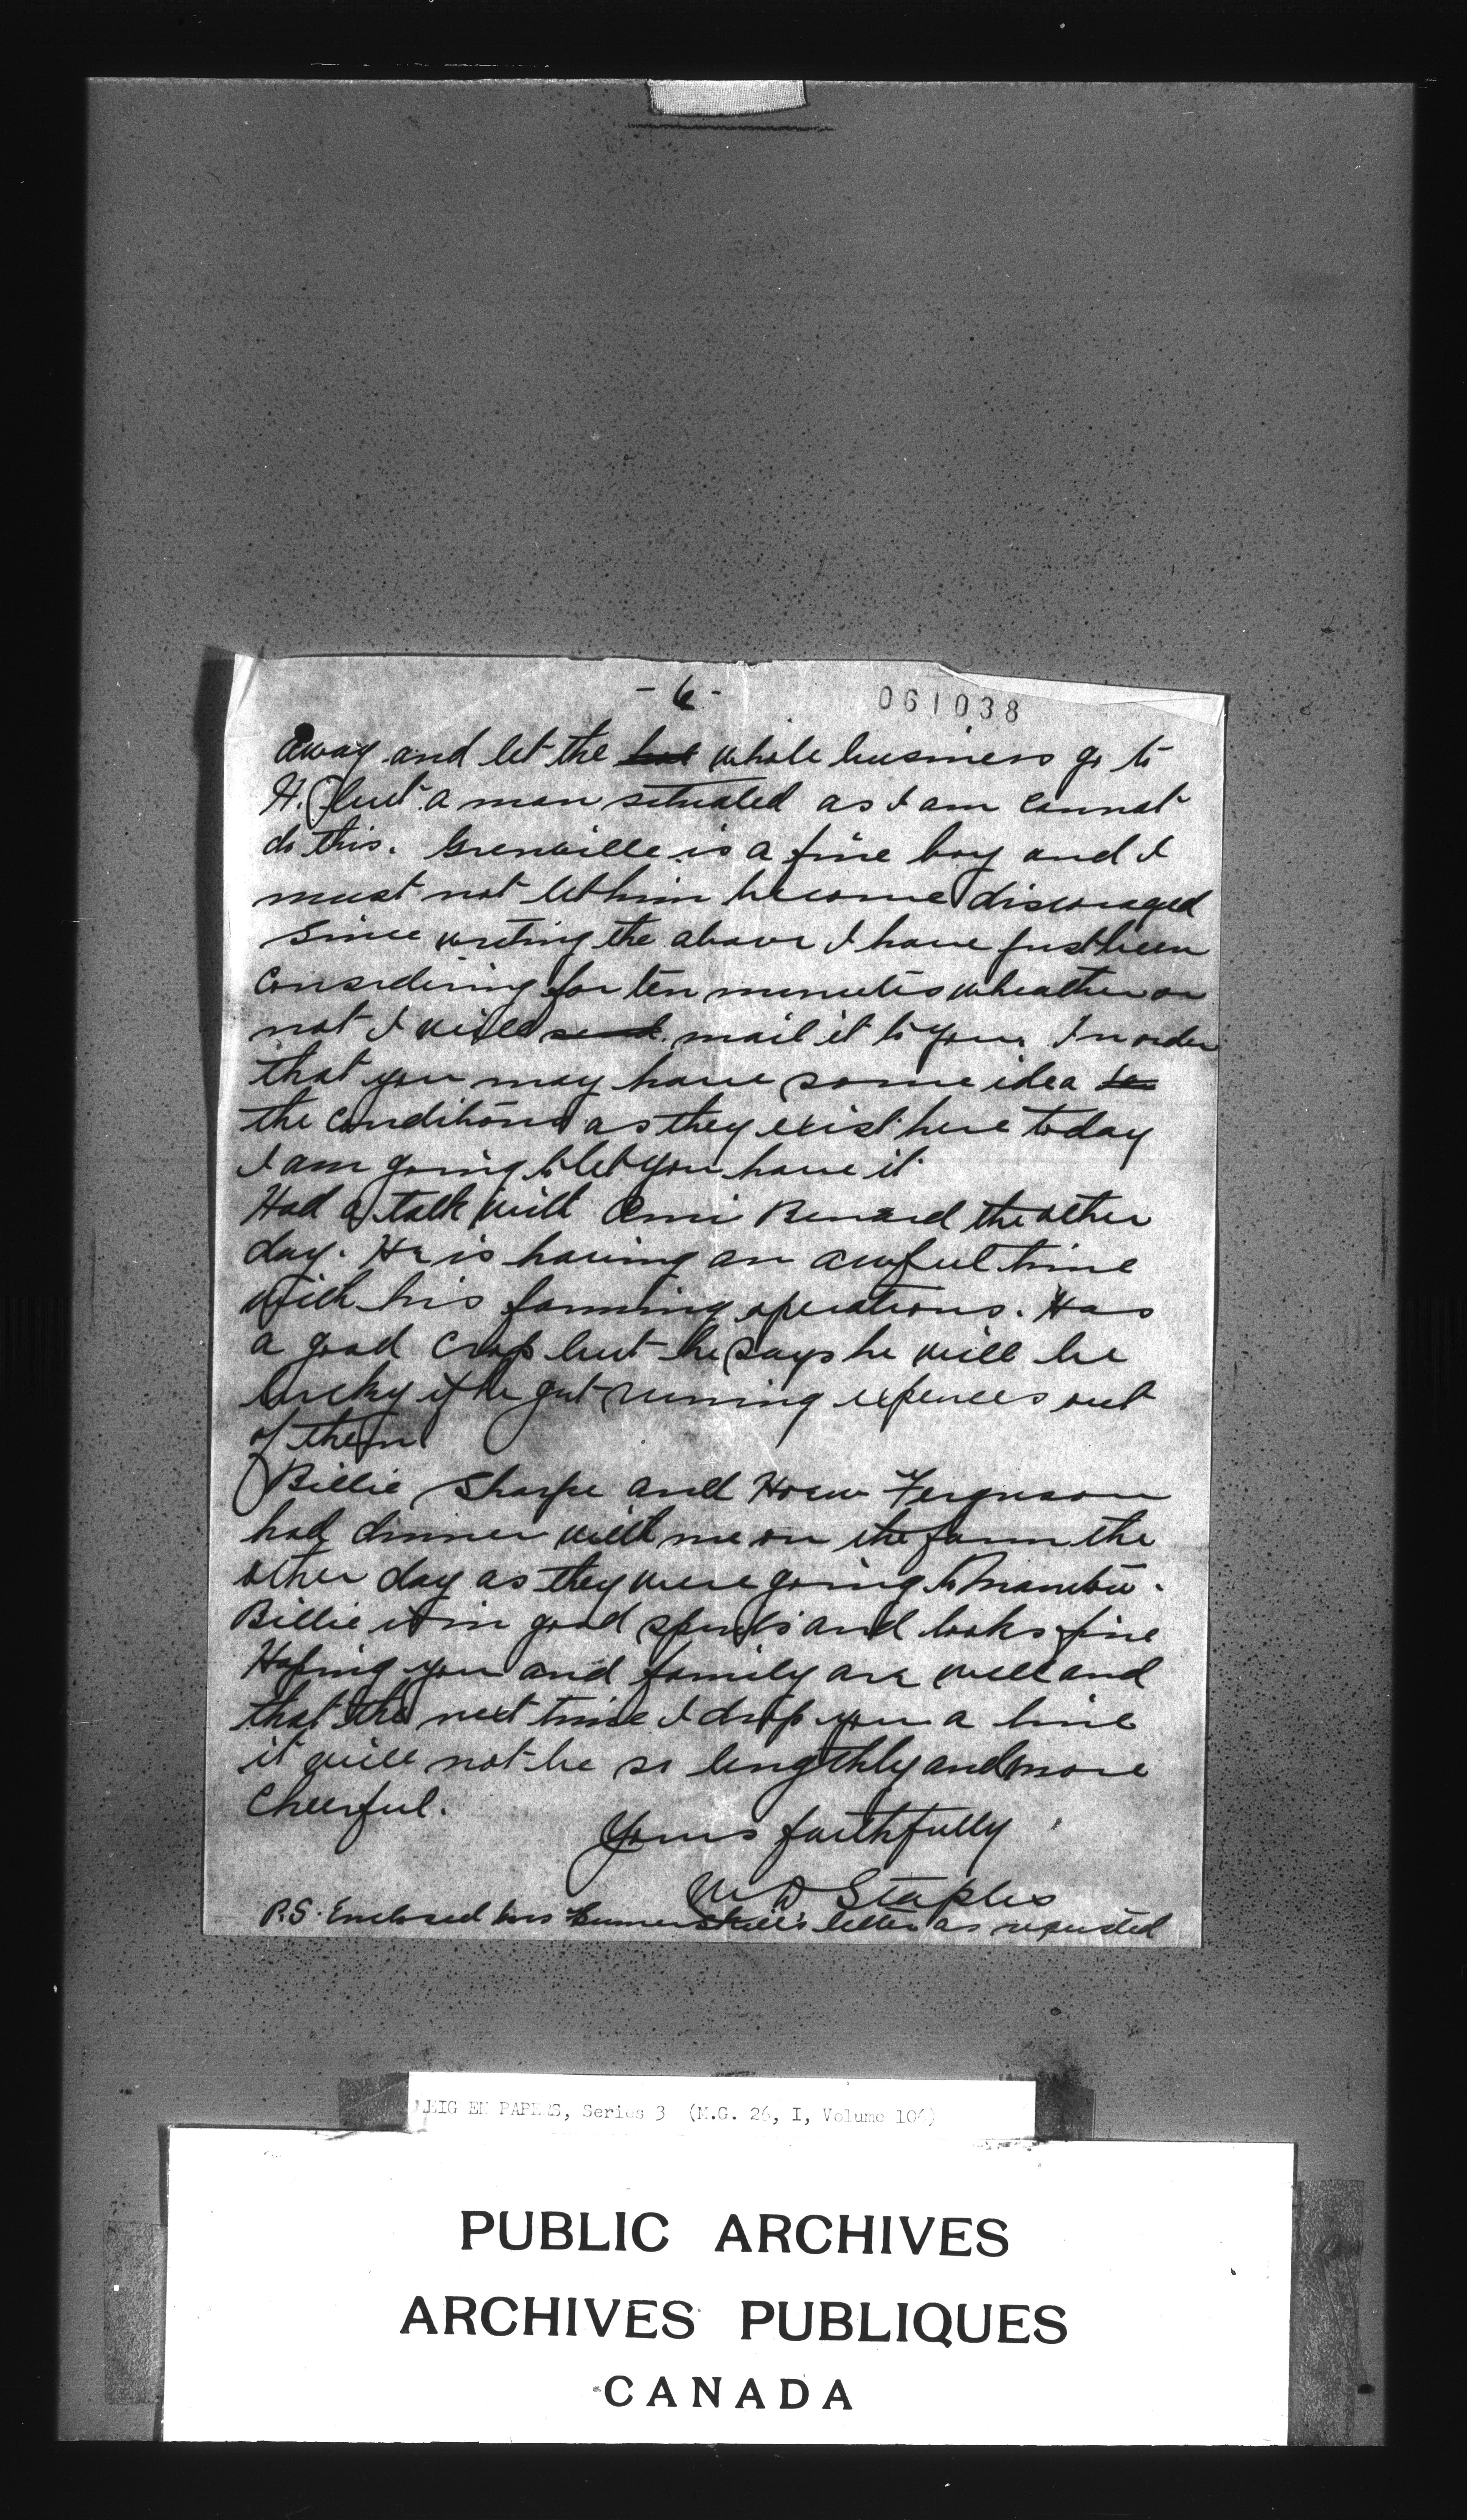 - 6 -
061038
away and let the whole business go to
H. but a man situated as I am cannot
do this. Grenville is a fine boy and I
must not let him become discouraged
Since writing the above I have just been
considering for ten minutes wheather or
not I will send mail it to you. In order
that you may have some idea to
the conditions as they exist here today
I am going to let you have it
Had a talk with Ami Benard the other
day. He is having an awful time
with his farming operations. Has
a good crop but he says he will be
lucky if he gut running expences out
of them
Billie Sharpe and Ferguson
had dinner with me on the farm the
other day as they were going to Manitou.
Billie is in good spirits and looks fine
Hoping you and family are well and
that the next time I drop you a line
it will not be so lengthly and more
Cheerful.
Yours faithfully
W D Staples
P.S. Enclosed letter as requested
EN PAPERS, Series 3 (M.G. 26, I, Volume 106)
PUBLIC ARCHIVES
ARCHIVES PUBLIQUES
CANADA